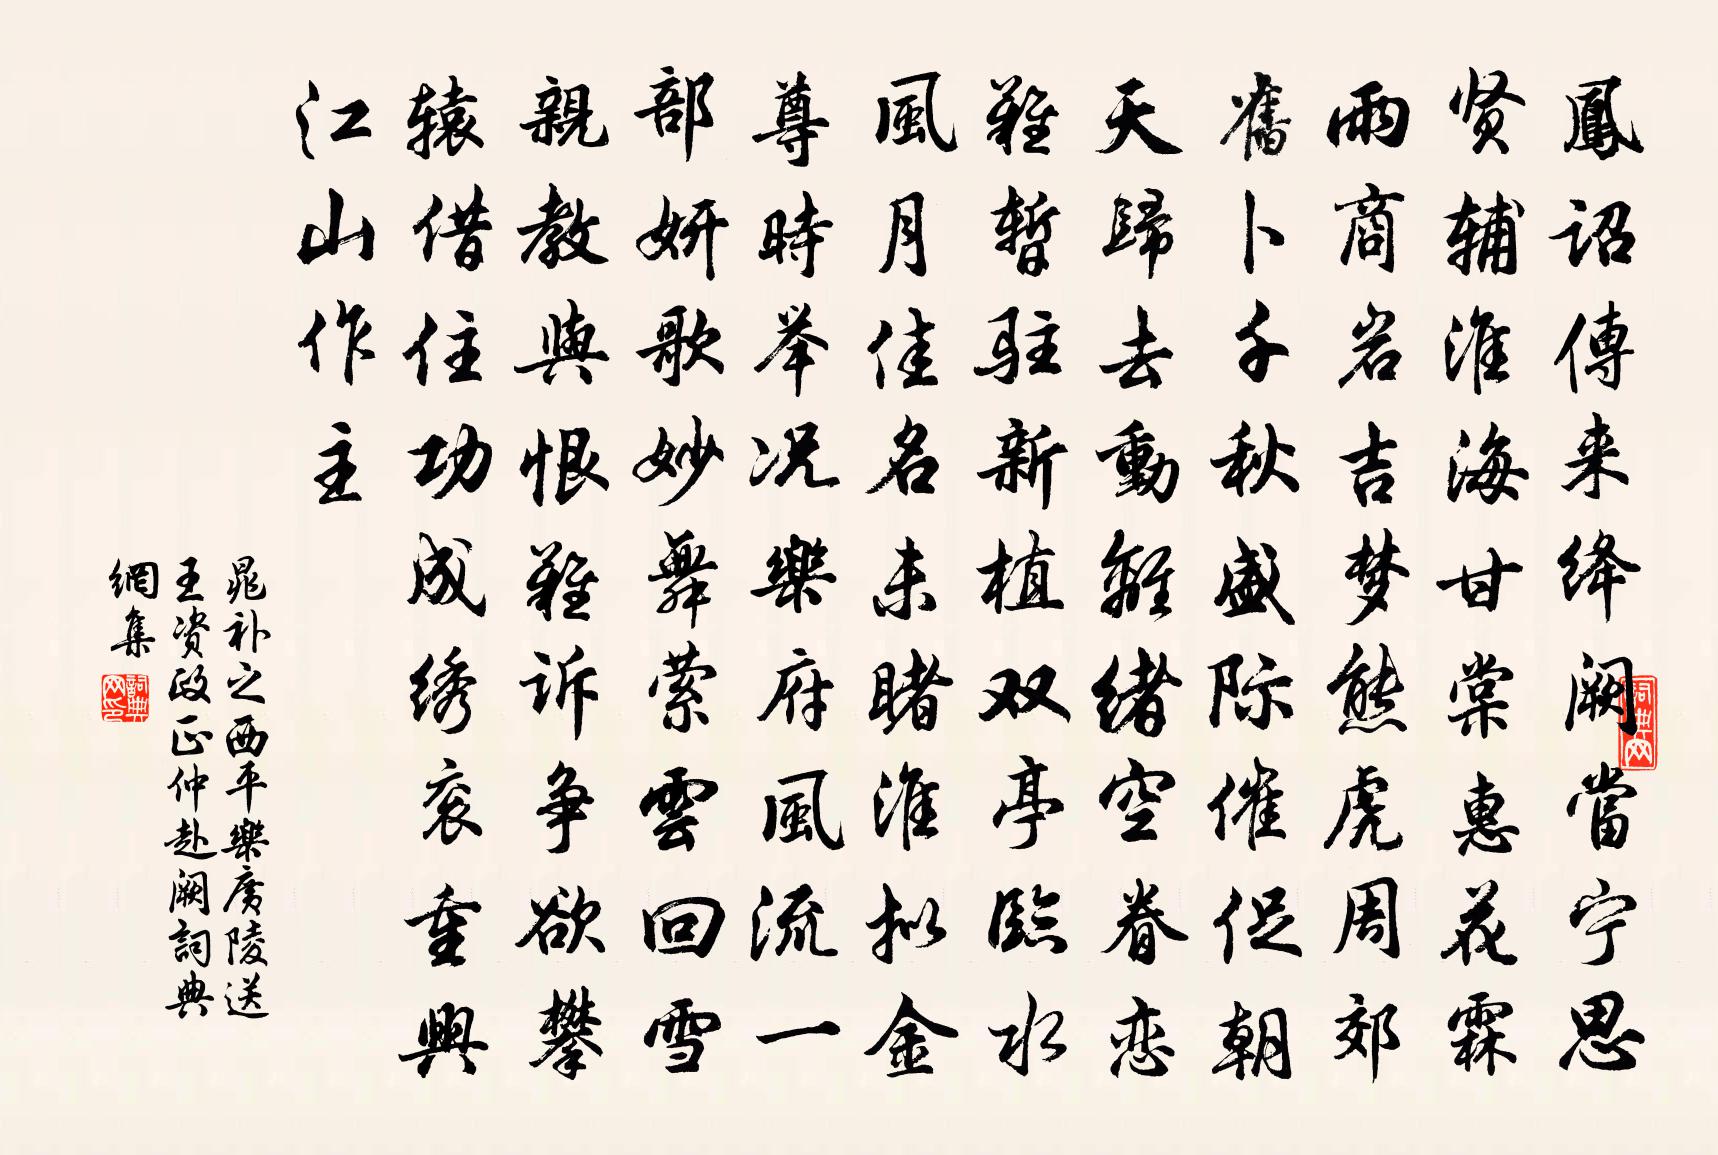 鳳诏傳来绛阙當宁思
贤辅淮海甘棠惠花霖
雨商岩吉梦熊虎周郊
舊卜千秋盛际催促朝
天歸去動離绪空眷恋
難暂驻新植双亭臨水
風月佳名未睹淮拟金
尊時举况樂府風流一
部妍歌妙舞萦雲回雪
親教與恨難诉争欲攀
辕借住功成绣衮重興
江山作主
晁补之西平樂廣陵送
王资政正仲赴阙詞典
網集